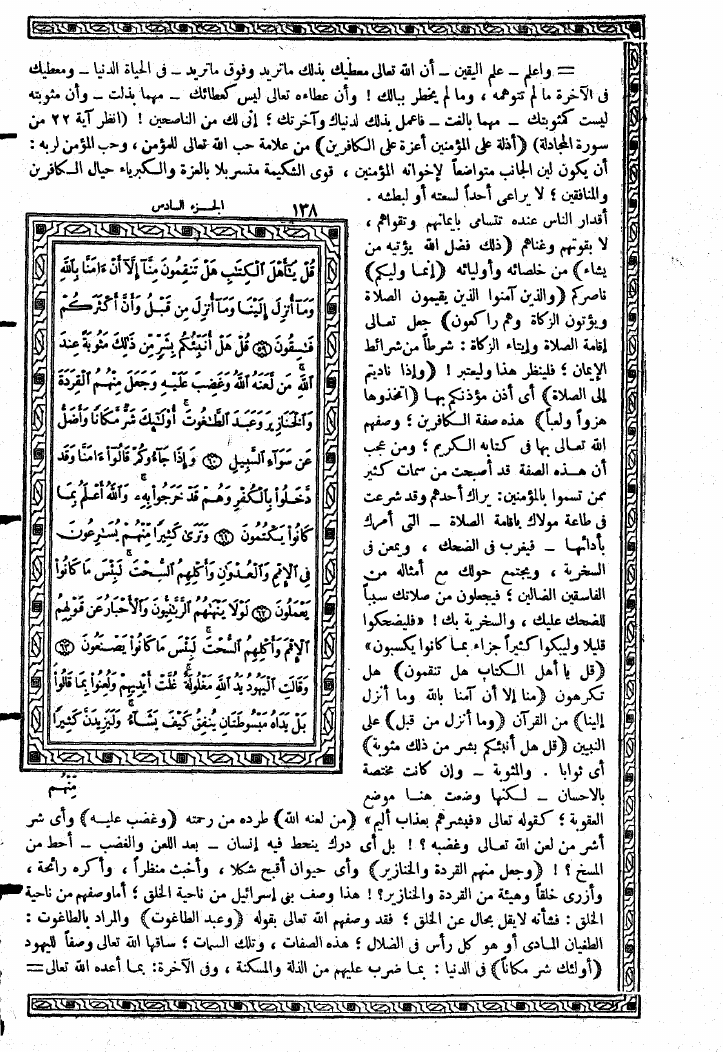 = واعلم ــ علم اليقين ــ أن الله تعالى معطيك بذلك ماتريد وفوق ماتريد ــ فى الحياة الدنيا ــ ومعطيك
فى الآخرة ما لم تتوهمه ، وما لم يخطر ببالك ! وأن عطاءه تعالى ليس كعطائك ــ مهما بذلت ــ وأن مثوبته
ليست كمثوبتك ــ مهما بالغت ــ فاعمل بذلك لدنياك وآخرتك ؛ إنى لك من الناصحين ! (انظر آية ٢٢ من
سورة المجادلة) (أذلة على المؤمنين أعزة على الكافرين) من علامة حب الله تعالى للمؤمن ، وحب المؤمن لربه :
أن يكون لين الجانب متواضعاً لإخوانه المؤمنين ، قوى الشكيمة متسربلا بالعزة والكبرياء حيال الكافرين
والمنافقين ؛ لا يراعى أحداً لسعته أو لبطشه .
أقدار الناس عنده تتسامى بإيمانهم وتقواهم ،
لا بقوتهم وغناهم (ذلك فضل الله يؤتيه من
يشاء) من خلصائه وأوليائه (إنما وليكم)
ناصركم (والذين آمنوا الذين يقيمون الصلاة
ويؤتون الزكاة وهم راكعون) جعل تعالى
إقامة الصلاة وإيتاء الزكاة : شرطاً من شرائط
الإيمان ؛ فلينظر هذا وليعتبر ! (وإذا ناديتم
إلى الصلاة) أى أذن مؤذنكم بها (اتخذوها
هزواً ولعباً) هذه صفة الكافرين ؛ وصفهم
الله تعالى بها فى كتابه الكريم ؛ ومن عجب
أن هذه الصفة قد أصبحت من سمات كثير
ممن تسموا بالمؤمنين : يراك أحدهم وقد شرعت
فى طاعة مولاك بإقامة الصلاة ــ التى أمرك
بأدائها ــ فيغرب فى الضحك ، ويمعن فى
السخرية ، ويجتمع حولك مع أمثاله من
الفاسقين الضالين ؛ فيجعلون من صلاتك سبباً
للضحك عليك ، والسخرية بك ! «فليضحكوا
قليلا وليبكوا كثيراً جزاء بما كانوا يكسبون»
(قل يا أهل الكتاب هل تنقمون) هل
تكرهون (منا إلا أن آمنا بالله وما أنزل
إلينا) من القرآن (وما أنزل من قبل) على
النبيين (قل هل أنبئكم بشر من ذلك مثوبة)
أى ثوابا . والمثوبة ــ وإن كانت مختصة
بالاحسان ــ لكنها وضعت هنا موضع
العقوبة ؛ كقوله تعالى «فبشرهم بعذاب أليم» (من لعنه الله) طرده من رحمته (وغضب عليه) وأى شر
أشر من لعن الله تعالى وغضبه ؟ ! بل أى درك ينحط فيه إنسان ــ بعد اللعن والغضب ــ أحط من
المسخ ؟ ! (وجعل منهم القردة والخنازير) وأى حيوان أقبح شكلا ، وأخبث منظراً ، وأكره رائحة ،
وأزرى خلقاً وهيئة من القردة والخنازير؟ ! هذا وصف بنى إسرائيل من ناحية الخلق ؛ أما وصفهم من ناحية
الخلق : فشأنه لايقل بحال عن الخلق ؛ فقد وصفهم الله تعالى بقوله (وعبد الطاغوت) والمراد بالطاغوت :
الطغيان المادى أو هو كل رأس فى الضلال ؛ هذه الصفات ، وتلك السمات ؛ ساقها الله تعالى وصفاً لليهود
(أولئك شر مكاناً) فى الدنيا : بما ضرب عليهم من الذلة والمسكنة ، وفى الآخرة : بما أعده الله تعالى =
١٣٨ الجزء السادس
قُلْ يَٰٓأَهْلَ ٱلْكِتَٰبِ هَلْ تَنقِمُونَ مِنَّآ إِلَّآ أَنْ ءَامَنَّا بِٱللَّهِ
وَمَآ أُنزِلَ إِلَيْنَا وَمَآ أُنزِلَ مِن قَبْلُ وَأَنَّ أَكْثَرَكُمْ
فَٰسِقُونَ ۝٥٩ قُلْ هَلْ أُنَبِّئُكُم بِشَرٍّ مِّن ذَٰلِكَ مَثُوبَةً عِندَ
ٱللَّهِ ۚ مَن لَّعَنَهُ ٱللَّهُ وَغَضِبَ عَلَيْهِ وَجَعَلَ مِنْهُمُ ٱلْقِرَدَةَ
وَٱلْخَنَازِيرَ وَعَبَدَ ٱلطَّٰغُوتَ ۚ أُو۟لَٰٓئِكَ شَرٌّ مَّكَانًا وَأَضَلُّ
عَن سَوَآءِ ٱلسَّبِيلِ ۝٦٠ وَإِذَا جَآءُوكُمْ قَالُوٓا۟ ءَامَنَّا وَقَد
دَّخَلُوا۟ بِٱلْكُفْرِ وَهُمْ قَدْ خَرَجُوا۟ بِهِۦ ۚ وَٱللَّهُ أَعْلَمُ بِمَا
كَانُوا۟ يَكْتُمُونَ ۝٦١ وَتَرَىٰ كَثِيرًا مِّنْهُمْ يُسَٰرِعُونَ
فِى ٱلْإِثْمِ وَٱلْعُدْوَٰنِ وَأَكْلِهِمُ ٱلسُّحْتَ ۚ لَبِئْسَ مَا كَانُوا۟
يَعْمَلُونَ ۝٦٢ لَوْلَا يَنْهَىٰهُمُ ٱلرَّبَّٰنِيُّونَ وَٱلْأَحْبَارُ عَن قَوْلِهِمُ
ٱلْإِثْمَ وَأَكْلِهِمُ ٱلسُّحْتَ ۚ لَبِئْسَ مَا كَانُوا۟ يَصْنَعُونَ ۝٦٣
وَقَالَتِ ٱلْيَهُودُ يَدُ ٱللَّهِ مَغْلُولَةٌ ۚ غُلَّتْ أَيْدِيهِمْ وَلُعِنُوا۟ بِمَا قَالُوا۟ ۘ
بَلْ يَدَاهُ مَبْسُوطَتَانِ يُنفِقُ كَيْفَ يَشَآءُ ۚ وَلَيَزِيدَنَّ كَثِيرًا
مِّنْهُم